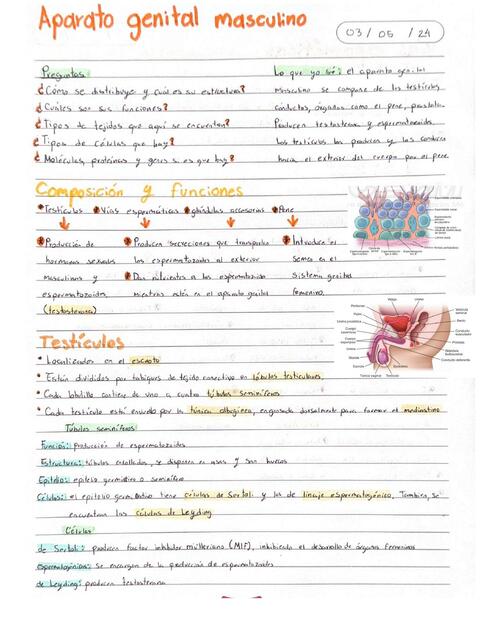 Aparato genital masculino
03/05/24
Preguntas:
¿Cómo se distribuye y cuál es su estructura?
¿Cuáles son sus funciones?
¿Tipos de tejidos que aquí se encuentran?
¿Tipos de células que hay?
¿Moléculas, proteínas y genes s. es que hay?
Lo que yo sé: el aparato genital
masculino se compone de los testículos
conductos, órganos como el pene, prostata.
Producen testosterona y espermatozoides.
Los testículos los producen y los conducen
hacia el exterior del cuerpo por el pene.
Composición y funciones
Testículos Vías espermáticas glándulas accesorias Pene
Producción de
hormonas sexuales
masculinas y
espermatozoides.
(testosterona)
Producen secreciones que transportan
los espermatozoides al exterior
Dan nutrientes a los espermatozoides
mientras están en el aparato genital
Introduce el
semen en el
sistema genital
femenino.
Testículos
Localizados en el escroto
Están divididos por tabiques de tejido conectivo en lóbulos testiculares.
Cada lobulillo contiene de uno a cuatro túbulos seminíferos
Cada testículo está envuelto por la túnica albugínea, engrosada dorsalmente para formar el mediastino
Túbulos seminíferos
Función: Producción de espermatozoides
Estructura: túbulos enrollados, se disponen en asas y son huecos
Epitelio: epitelio germinativo o seminífero
Células: el epitelio germinativo tiene células de Sertoli y las de linaje espermatogénico. También, se
encuentran las células de Leyding
Células
de Sertoli: producen factor inhibidor mülleriano (MIF), inhibiendo el desarrollo de órganos femeninos
espermatogénicas: se encargan de la producción de espermatozoides
de Leyding: producen testosterona